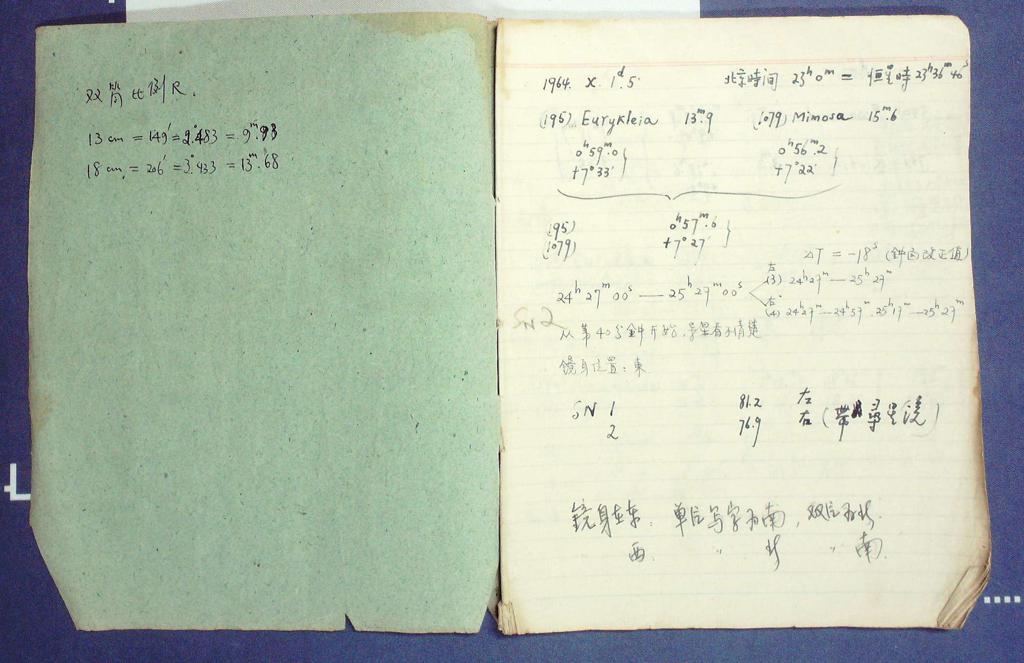 双筒比例尺.
13 cm = 149′ = 2°.483 = 9ᵐ.93
18 cm. = 206′ = 3°.433 = 13ᵐ.68
1964. X. 1ᵈ.5 北京時间 23ʰ0ᵐ = 恒星時 23ʰ36ᵐ40ˢ
(195) Eurykleia 13ᵐ.9 (1079) Mimosa 15ᵐ.6
0ʰ59ᵐ.0 } 0ʰ56ᵐ.2 }
+7°33′ +7°22′
(195) 0ʰ57ᵐ.6 }
(1079) +7°27′
ΔT = -18ˢ (鈡面改正值)
左
(3) 24ʰ27ᵐ — 25ʰ27ᵐ
24ʰ27ᵐ00ˢ — 25ʰ27ᵐ00ˢ
右
(4) 24ʰ27ᵐ — 24ʰ57ᵐ. 25ʰ17ᵐ — 25ʰ27ᵐ
SN2
从第40分鈡开始,导星看不清楚
鏡身位置:東
SN 1 81.2 左
2 76.9 右 (帶尋星鏡)
鏡身在东: 单后写字为南, 双后为北.
西 〃 北 〃 南.